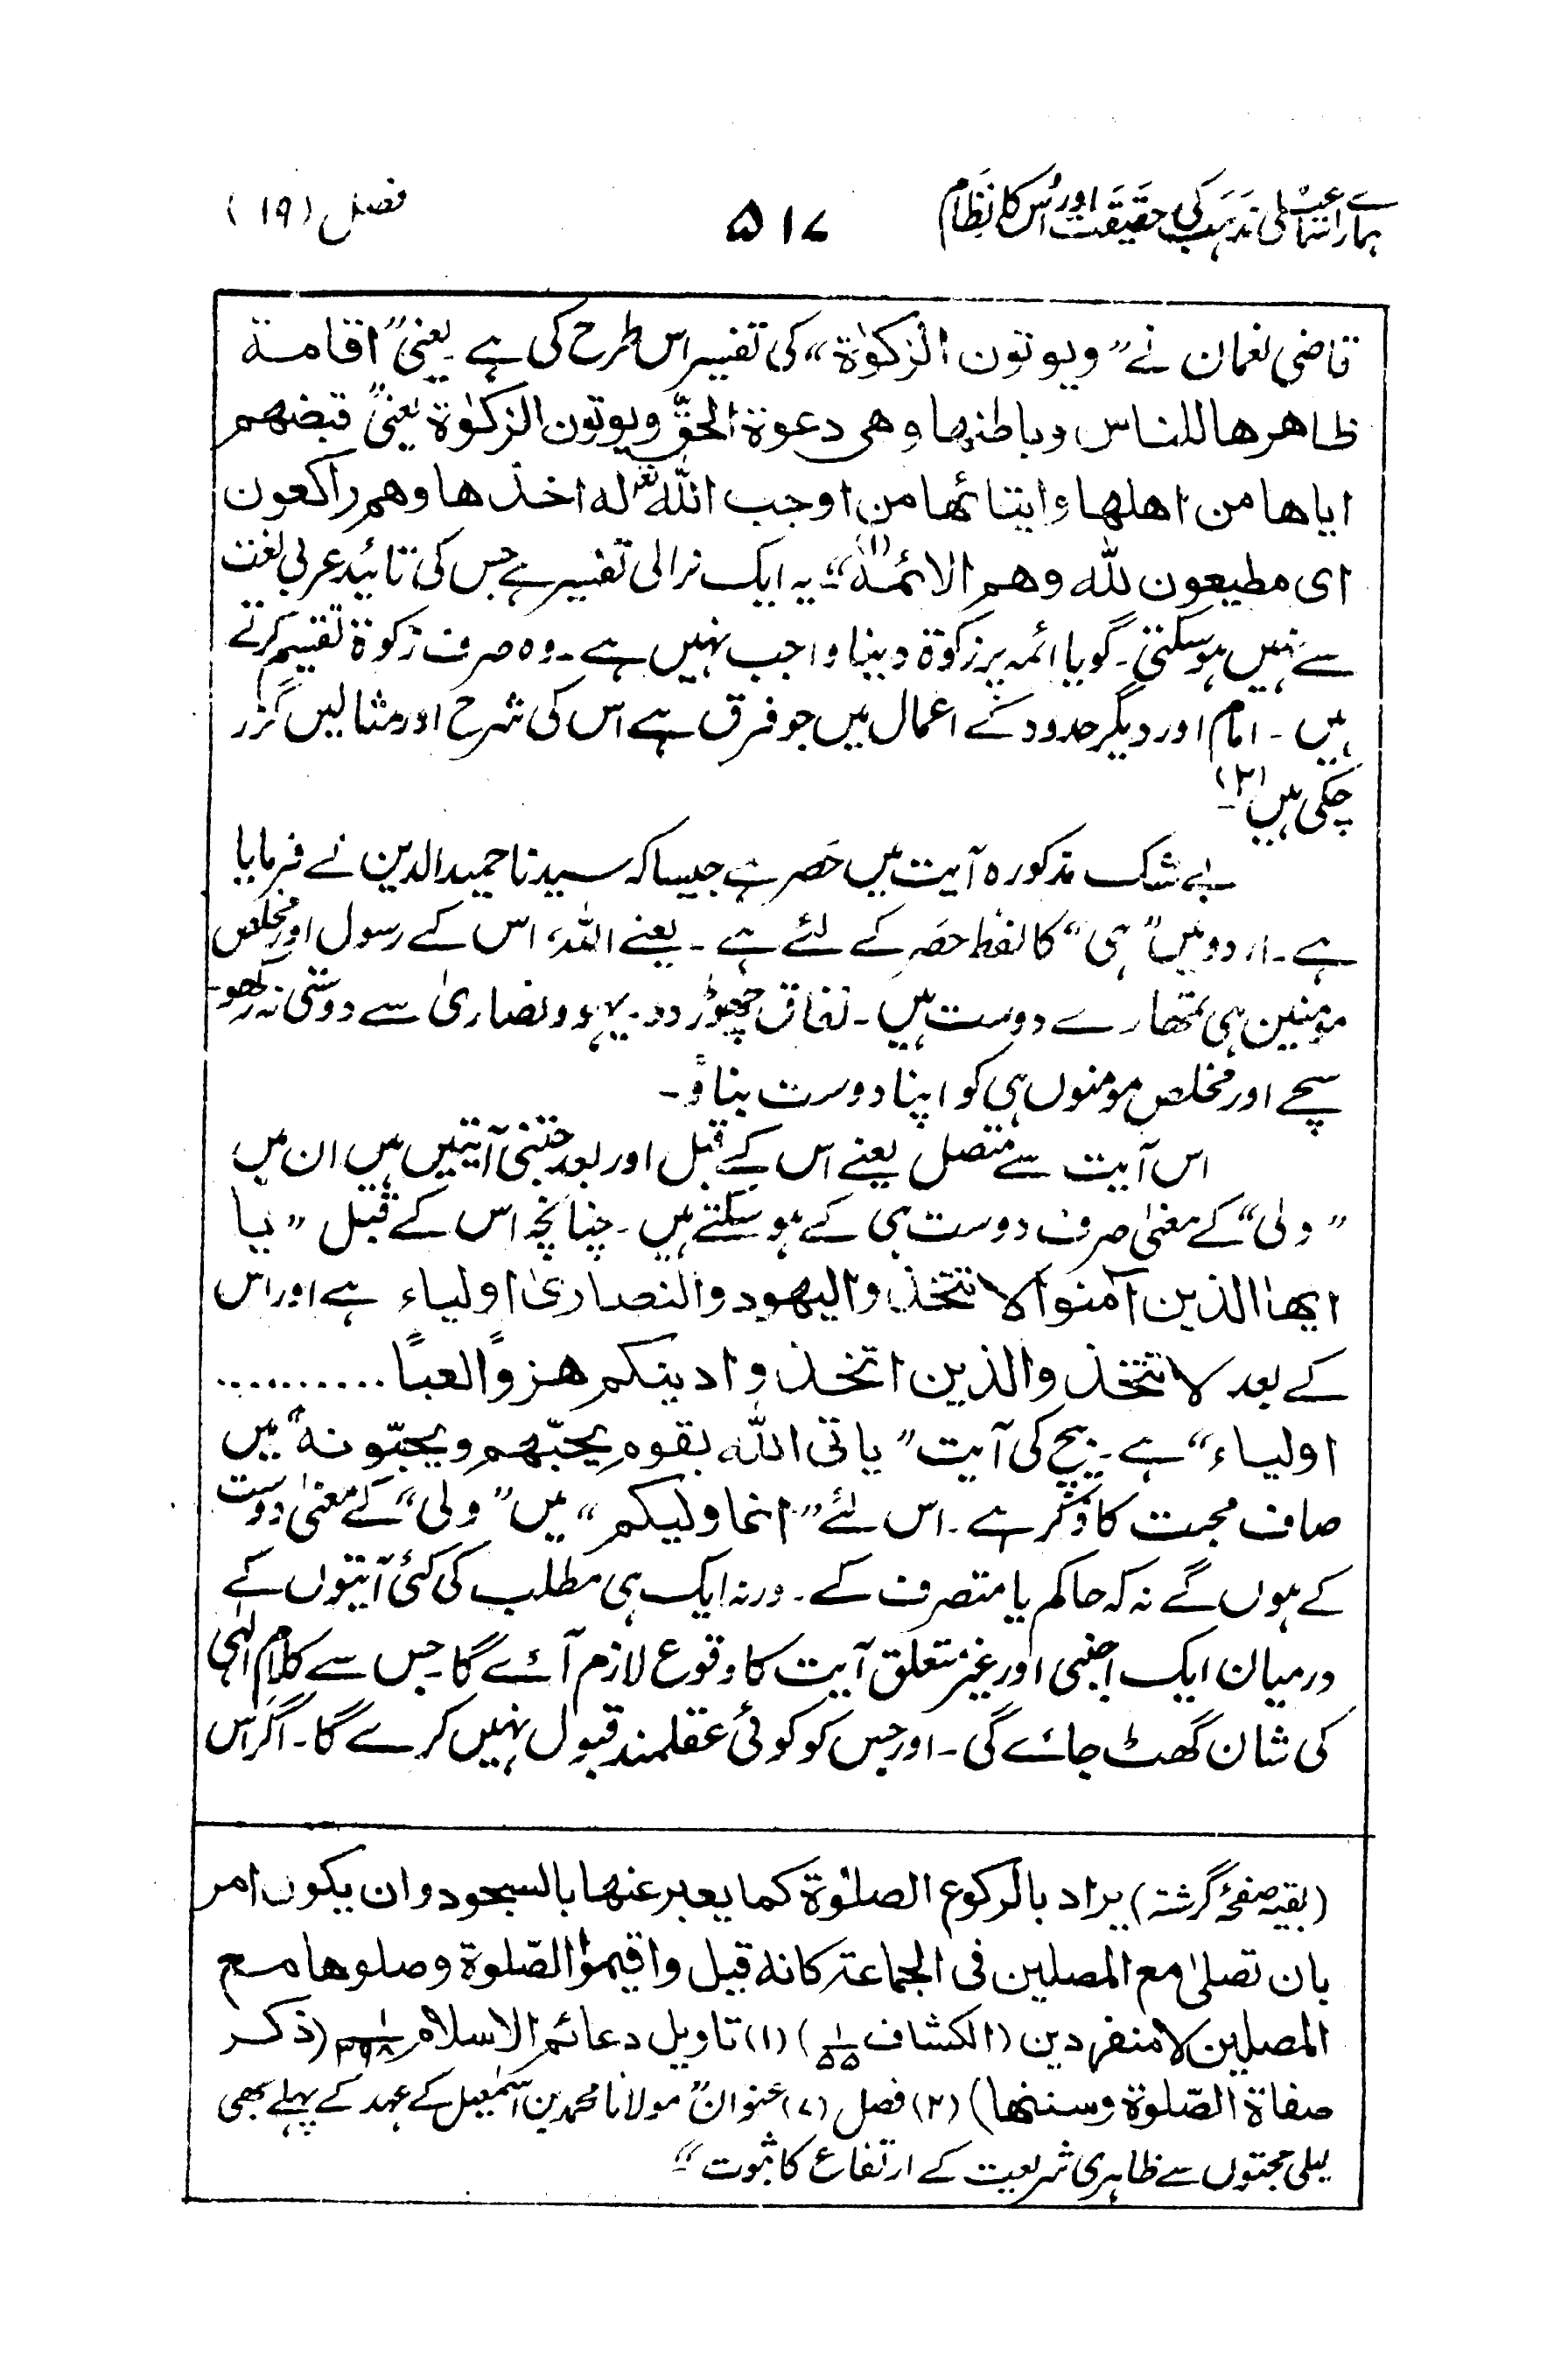 ہمارے اسماعیلی مذہب کی حقیقت اور اُس کا نظام ۵۱۷ فصل (۱۹)
قاضی نعمان نے ”ویوتون الزکوٰۃ“ کی تفسیر اس طرح کی ہے۔ یعنی ”اقامۃ
ظاھرھا للناس و باطنھا وھی دعوۃ الحقّ ویوتون الزکوٰۃ یعنی“ قبضھم
ایاھا من اھلھا وایتائھا من اوجب اللہ تعہ لہ اخذھا وھم راکعون
ای مطیعون للہ وھم الائمۃ (۱)“۔ یہ ایک نرالی تفسیر ہے جس کی تائید عربی لغت
سے نہیں ہو سکتی۔ گویا ائمہ پر زکوۃ دینا واجب نہیں ہے۔ وہ صرف زکوۃ تقسیم کرتے
ہیں۔ امام اور دیگر حدود کے اعمال میں جو فرق ہے اس کی شرح اور مثالیں گزر
چکی ہیں (۲)۔
بے شک مذکورہ آیت میں حَصر ہے جیسا کہ سیدنا حمید الدین نے فرمایا
ہے۔ اردو میں ”ہی“ کا لفظ حصَر کے لئے ہے۔ یعنے اللہ، اس کے رسول اور مخلص
مومنین ہی تمھارے دوست ہیں۔ نفاق چھوڑ دو۔ یہود و نصاریٰ سے دوستی نہ رکھو۔
سچے اور مخلص مومنوں ہی کو اپنا دوست بناؤ۔
اس آیت سے متصل یعنے اس کے قبل اور بعد جتنی آیتیں ہیں ان میں
”ولی“ کے معنیٰ صرف دوست ہی کے ہو سکتے ہیں۔ چنانچہ اس کے قبل ”یا
ایھا الذین آمنوا لا تتخذوا الیھود والنصاریٰ اولیاء ہے اور اس
کے بعد لا تتخذوا الذین اتخذوا دینکم ھزوًا لعبًا ..........
اولیاء“ ہے۔ بیچ کی آیت ”یاتی اللہ بقوم یحبّھم ویحبّونہ“ میں
صاف محبت کا ذکر ہے۔ اس لئے ”انما ولیکم“ میں ”ولی“ کے معنیٰ دوست
کے ہوں گے نہ کہ حاکم یا متصرف کے۔ ورنہ ایک ہی مطلب کی کئی آیتوں کے
درمیان ایک اجنبی اور غیر متعلق آیت کا وقوع لازم آئے گا۔ جس سے کلامِ الہٰی
کی شان گھٹ جائے گی۔ اور جس کو کوئی عقلمند قبول نہیں کرے گا۔ اگر اس
(بقیہ صفحۂ گزشتہ) یراد بالرکوع الصلوٰۃ کما یعبر عنھا بالسجود وان یکون امر
بان تصلیٰ مع المصلین فی الجماعۃ کانہ قیل واقیموا الصّلوۃ وصلوھا مع
المصلین لا منفردین (الکشاف ۱/۵۵) (۱) تاویل دعائم الاسلام (ذکر
صفاۃ الصّلوۃ وسننھا) (۲) فصل (۷) عنوان ”مولانا محمد بن اسمٰعیل کے عہد کے پہلے بھی
لیلی محبتوں سے ظاہری شریعت کے ارتفاع کا ثبوت“